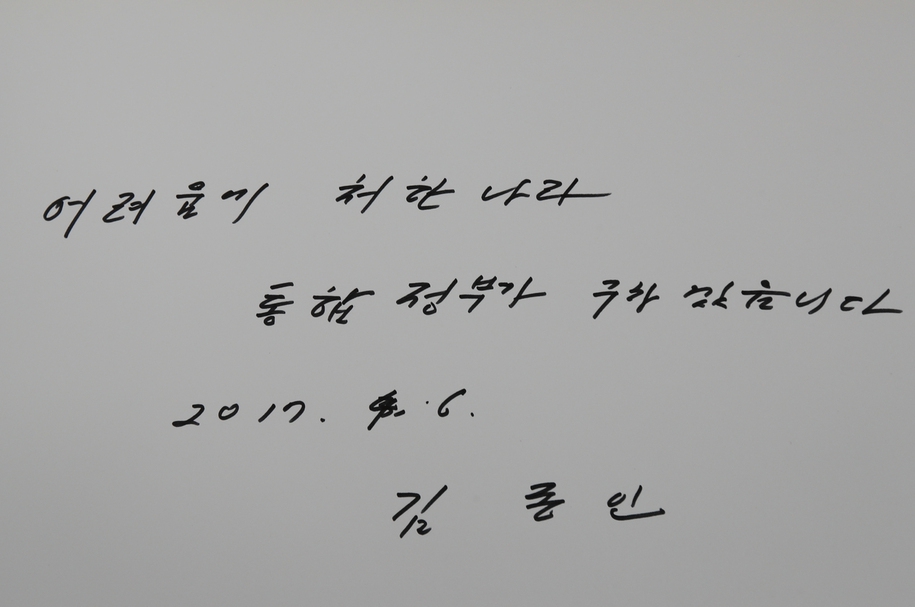 어려움에 처한 나라
통합정부가 구하겠습니다
2017. 4. 6.
김 종 인